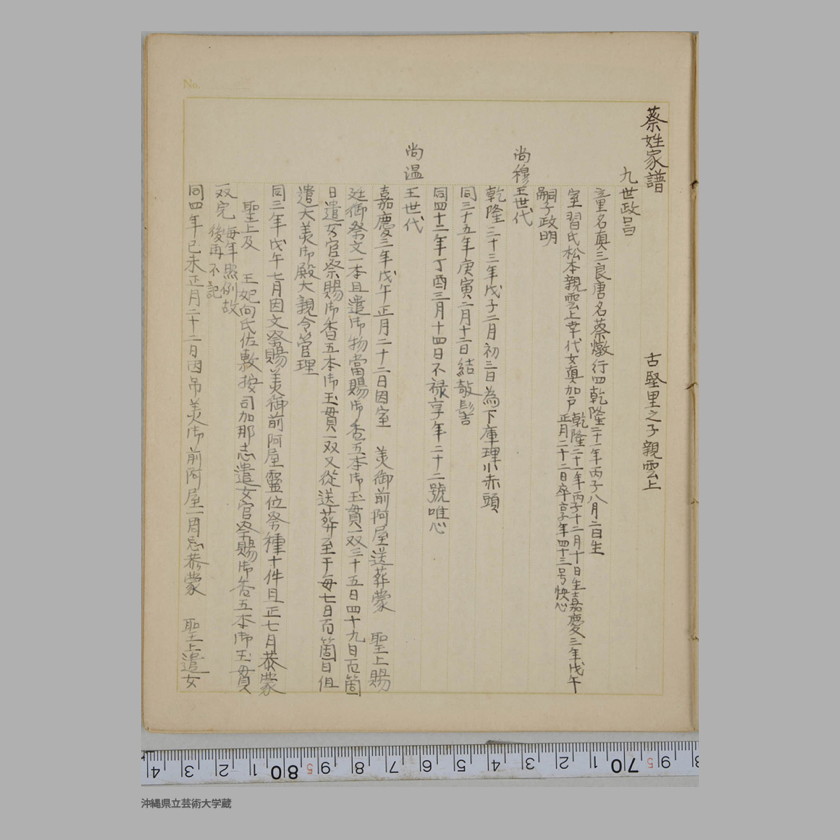 No.
蔡姓家譜
九世政昌　古堅里之子親雲上
童名真三良唐名蔡燉行四乾隆二十一年丙子八月二日生
室習氏松本親雲上幸代女真加戸乾隆二十一年丙子十二月十日生嘉慶三年戊午
正月二十二日卒享年四十三号快心
嗣子政明
尚穆王世代
乾隆三十三年戊子二月初三日為下庫理小赤頭
同三十五年庚寅二月十二日結敧髻
同四十二年丁酉三月十四日不禄享年二十二號唯心
尚温王世代
嘉慶三年戊午正月二十二日因室　美御前阿屋送葬蒙　聖上賜
姓御祭文一本且遣御物當賜御香五本御玉貫一双三十五日四十九日百箇
日遣女官祭賜御香五本御玉貫一双又従送葬至于毎七日百箇日俱
遣大美御殿大親令管理
同三年戊午七月因文祭賜美御前阿屋靈位祭種十件且正七月恭蒙
聖上及　王妃向氏佐敷按司加那志遣女官祭賜御香五本御玉貫
一双完毎年照例故
後再不記
同四年己未正月二十二日因吊美御前阿屋一周忌恭蒙　聖上遣女
4 3 2 1 80 9 5 8 7 6 5 4 3 2 1 70 5 9 8
沖縄県立芸術大学蔵